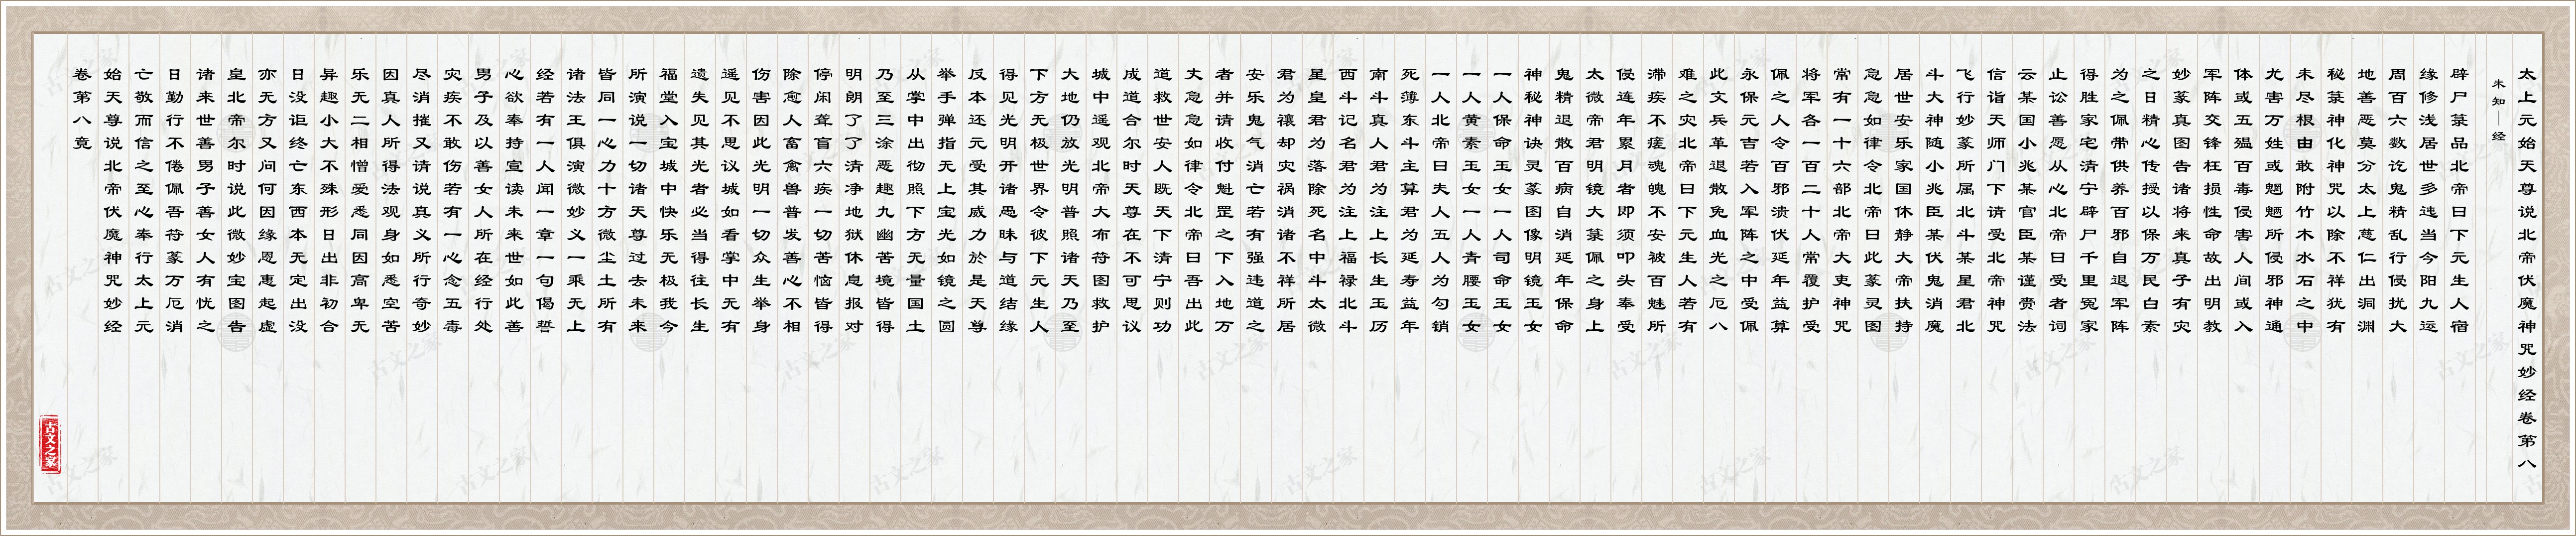 太上元始天尊说北帝伏魔神咒妙经卷第八
未知——经
辟尸箓品北帝曰下元生人宿
缘修浅居世多违当今阳九运
周百六数讫鬼精乱行侵扰大
地善恶莫分太上慈仁出洞渊
秘箓神化神咒以除不祥犹有
未尽根由敢附竹木水石之中
尤害万姓或魍魉所侵邪神通
体或五瘟百毒侵害人间或入
军阵交锋枉损性命故出明教
妙篆真图告诸将来真子有灾
之日精心传授以保万民白素
为之佩带供养百邪自退军阵
得胜家宅清宁辟尸千里冤家
止讼善愿从心北帝曰受者词
云某国小兆某官臣某谨赍法
信诣天师门下请受北帝神咒
飞行妙篆所属北斗某星君北
斗大神随小兆臣某伏鬼消魔
居世安乐家国休静大帝扶持
急急如律令北帝曰此篆灵图
常有一十六部北帝大吏神咒
将军各一百二十人常覆护受
佩之人令百邪溃伏延年益算
永保元吉若入军阵之中受佩
此文兵革退散免血光之厄八
难之灾北帝曰下元生人若有
滞疾不瘥魂魄不安被百魅所
侵连年累月者即须叩头奉受
太微帝君明镜大箓佩之身上
鬼精退散百病自消延年保命
神秘神诀灵篆图像明镜玉女
一人保命玉女一人司命玉女
一人黄素玉女一人青腰玉女
一人北帝曰夫人五人为勾销
死薄东斗主算君为延寿益年
南斗真人君为注上长生玉历
西斗记名君为注上福禄北斗
星皇君为落除死名中斗太微
君为禳却灾祸消诸不祥所居
安乐鬼气消亡若有强违道之
者并请收付魁罡之下入地万
丈急急如律令北帝曰吾出此
道救世安人既天下清宁则功
成道合尔时天尊在不可思议
城中遥观北帝大布符图救护
大地仍放光明普照诸天乃至
下方无极世界令彼下元生人
得见光明开诸愚昧与道结缘
反本还元受其威力於是天尊
举手弹指无上宝光如镜之圆
从掌中出彻照下方无量国土
乃至三涂恶趣九幽苦境皆得
明朗了了清净地狱休息报对
停闲聋盲六疾一切苦恼皆得
除愈人畜禽兽普发善心不相
伤害因此光明一切众生举身
遥见不思议城如看掌中无有
遗失见其光者必当得往长生
福堂入宝城中快乐无极我今
所演说一切诸天尊过去未来
皆同一心力十方微尘土所有
诸法王俱演微妙义一乘无上
经若有一人闻一章一句偈誓
心欲奉持宣读未来世如此善
男子及以善女人所在经行处
灾疾不敢伤若有一心念五毒
尽消摧又请说真义所行奇妙
因真人所得法观身如悉空苦
乐无二相憎爱悉同因高卑无
异趣小大不殊形日出非初合
日没讵终亡东西本无定出没
亦无方又问何因缘恩惠起虚
皇北帝尔时说此微妙宝图告
诸来世善男子善女人有忧之
日勤行不倦佩吾符篆万厄消
亡敬而信之至心奉行太上元
始天尊说北帝伏魔神咒妙经
卷第八竟
古文之家